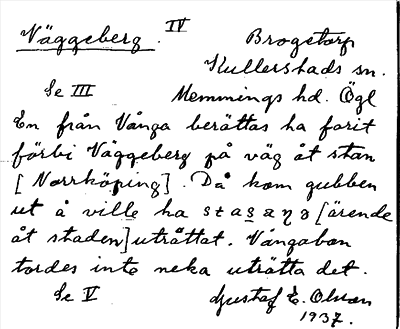 Väggeberg. IV Brogetorp
Kullerstads sn.
Se III Memmings hd. Ögl
En från Vånga berättas ha farit
förbi Väggeberg på väg åt stan
[Norrköping]. Då kom gubben
ut å ville ha stasaŋə [ärende
åt staden] uträttat. Vångabon
tordes inte neka uträtta det.
Se V Gustaf E. Olsson
1937.